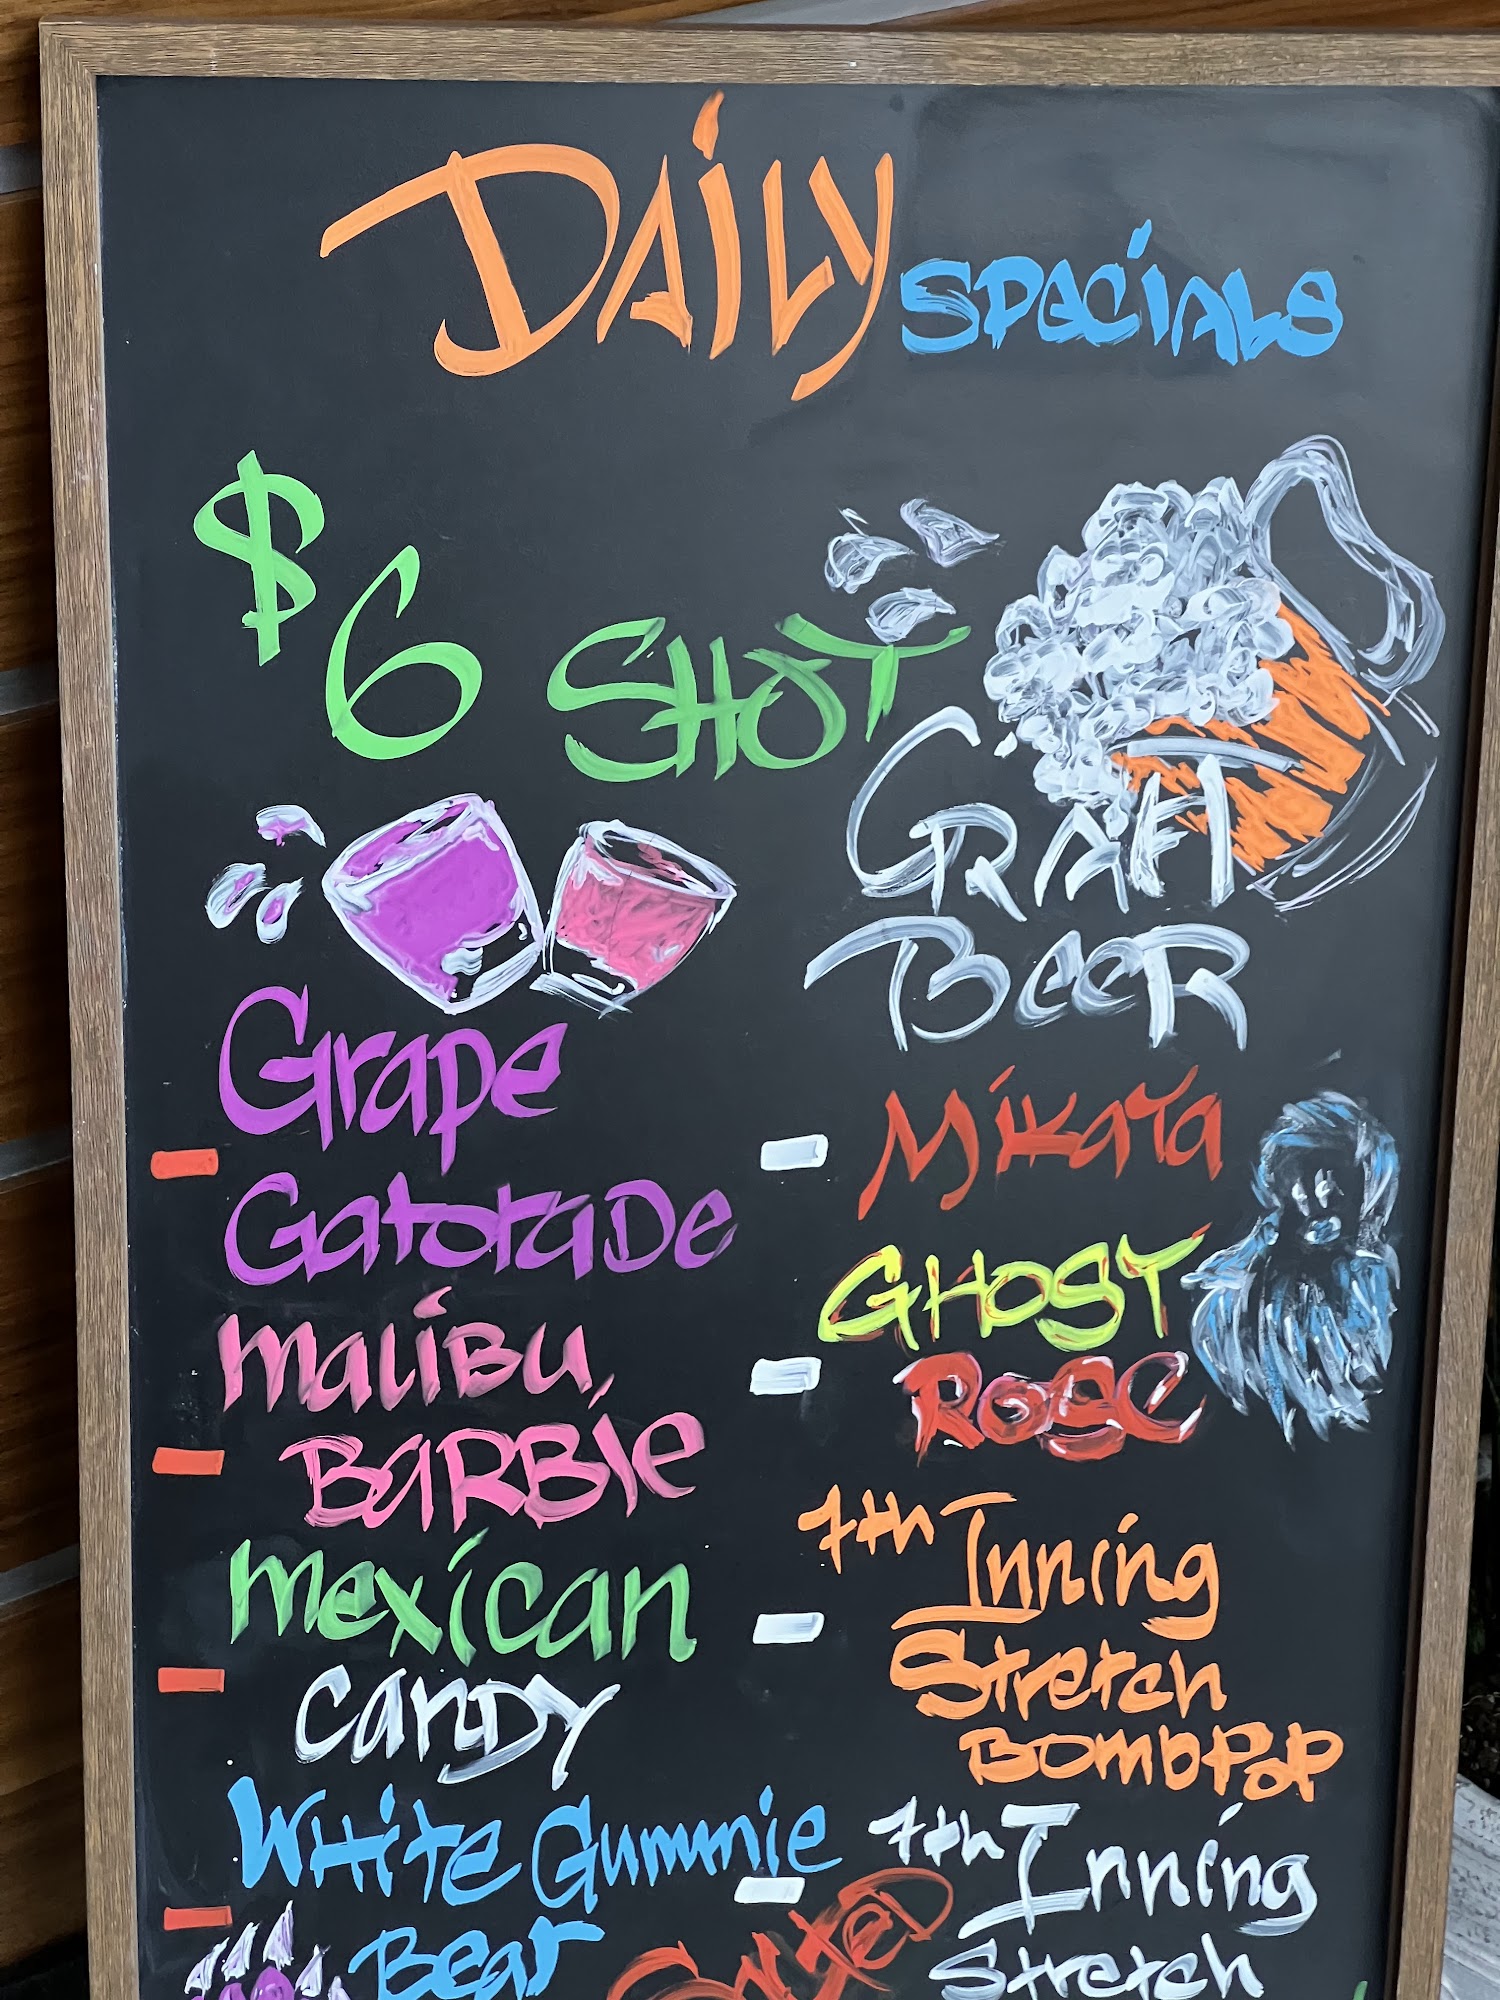 Daily Specials
$6 Shot
Grape
Gatorade
Malibu
Barbie
Mexican
Candy
White Gummie
Bear
Craft
Beer
Mikata
Ghost
Rose
7th Inning
Stretch
BombPop
7th Inning
Stretch